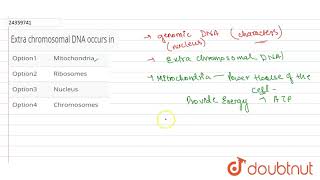 24359741
Extra chromosomal DNA occurs in
Option1 Mitochondria
Option2 Ribosomes
Option3 Nucleus
Option4 Chromosomes
→ genomic DNA (characters)
(nucleus)
→ Extra chromosomal DNA
→ Mitochondria → Power House of the
cell -
Provide Energy → ATP
doubtnut